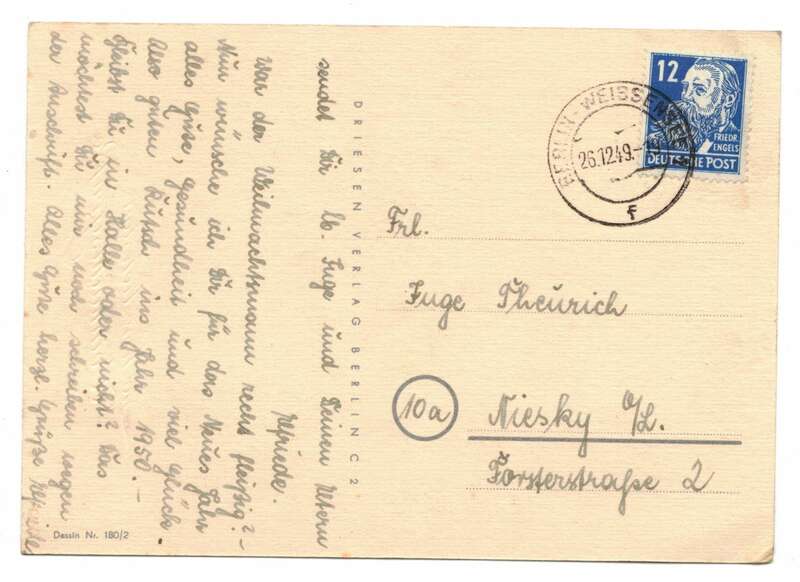 sendet Dir lb. Inge und Deinen Eltern
Elfriede.
War der Weihnachtsmann recht fleißig?-
Nun wünsche ich Dir für das Neue Jahr
alles Gute, Gesundheit und viel Glück.
Also guten Rutsch ins Jahr 1950.-
Bleibst Du in Halle oder nicht? Das
möchtest Du mir mal schreiben wegen
der Anschrift. Alles Gute herzl. Grüße Elfriede
Dessin Nr. 180/2
DRIESEN VERLAG BERLIN C 2
12
FRIEDR.
ENGELS
DEUTSCHE POST
BERLIN-WEISSENSEE
26.12.49.-
f
Frl.
Inge Theurich
10a Niesky O/L.
Forsterstraße 2